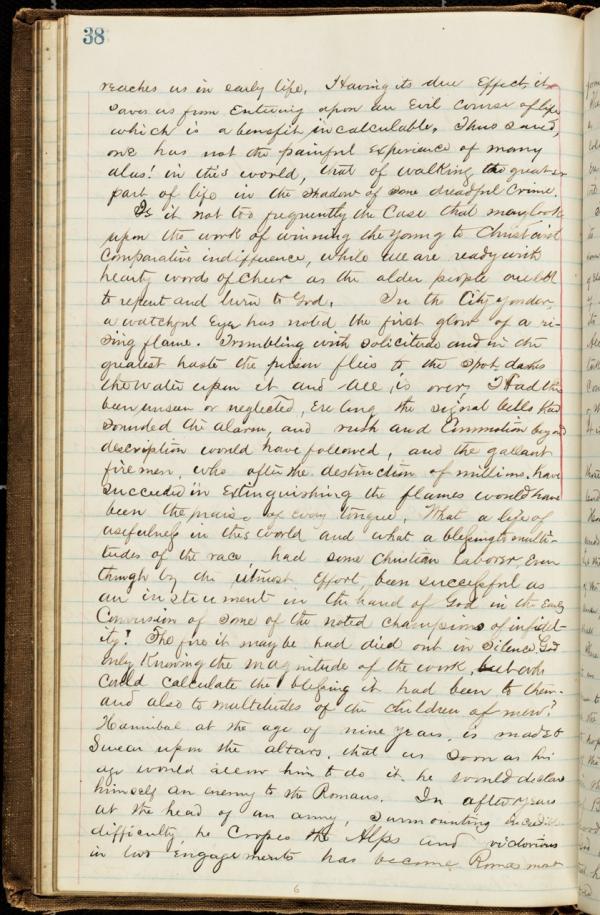 38
reaches us in early life. Having its due Effect, it
saves us from Entering upon an Evil course of life
which is a benefit incalculable. Thus saved,
one has not the painful Experience of many
alas! in this world, that of walking the greater
part of life in the shadow of some dreadful Crime.
Is it not too frequently the Case that many look
upon the work of winning the young to Christ with
Comparative indifference, while all are ready with
hearty words of Cheer as the older people
to repent and turn to God. In the City yonder,
a watchful Eye has noted the first glow of a ri-
sing flame. Trembling with solicitude and in the
greatest haste the person flies to the spot, dashes
the water upon it and all is over; Had this
been unseen or neglected, Ere long the signal bells had
sounded the alarm, and rush and Commotion beyond
description would have followed, and the gallant
firemen, who after the destruction of millions, have
succeeded in Extinguishing the flames would have
been the praise of Every tongue. What a life of
usefulness in this world and what a blessing to multi-
tudes of the race, had some Christian laborer Even
though by the utmost Effort, been successful as
an instrument in the hand of God in the Early
Conversion of some of the noted champions of infidel-
ity! The fire it may be had died out in silence, God
only Knowing the magnitude of the work, but who
could calculate the blessing it had been to them.
and also to multitudes of the children of men?
Hannibal at the age of nine years, is made to
Swear upon the altars, that as soon as his
age would allow him to do it, he would declare
himself an enemy to the Romans. In after years
at the head of an army, surmounting
difficulty, he Crosses the Alps and victorious
in two Engagements has become Romes most
6